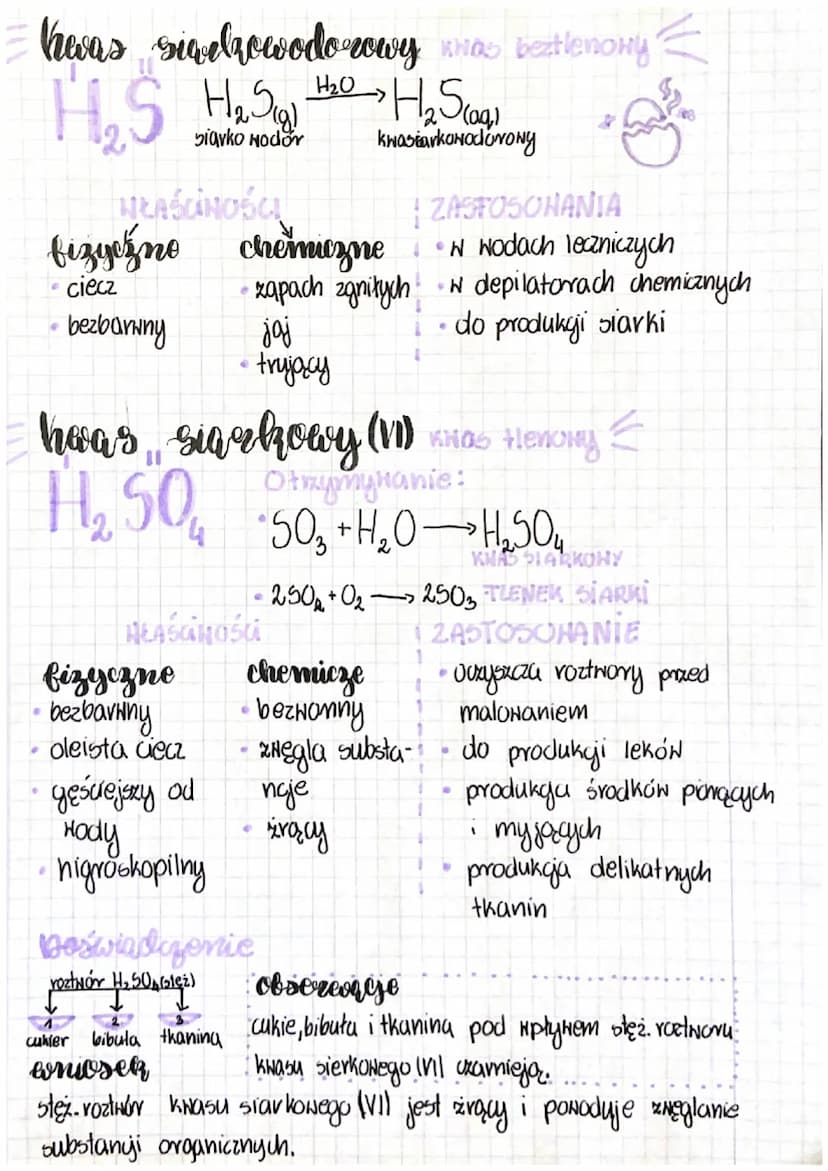 kwas siarkowodorowy kwas beztlenowy
H₂S
H₂S(g) H₂O → H₂S(aq)
siarko wodór kwassiarkowodorowy
WŁAŚCIWOŚCI
ZASTOSOWANIA
fizyczne
• ciecz
• bezbarwny
chemiczne
• zapach zgniłych
jaj
• trujący
• w wodach leczniczych
• w depilatorach chemicznych
• do produkcji siarki
kwas siarkowy (VI) kwas tlenowy
H₂SO₄
Otrzymywanie:
• SO₃ + H₂O → H₂SO₄
KWAS SIARKOWY
• 2SO₂ + O₂ → 2SO₃ TLENEK SIARKI
WŁAŚCIWOŚCI
ZASTOSOWANIE
fizyczne
• bezbarwny
• oleista ciecz
• gęściejszy od
wody
• higroskopilny
chemicze
• bezwonny
• zwęgla substa-
ncje
• żrący
• oczyszcza roztwory przed
malowaniem
• do produkcji leków
• produkcja środków piorących
i myjących
• produkcja delikatnych
tkanin
Doświadczenie
roztwór H₂SO₄(stęż)
1 2 3
cukier bibuła tkanina
obserwacje
cukie, bibuła i tkanina pod wpływem stęż. roztworu
kwasu sierkowego (VI) czarnieją.
wniosek
stęż. roztwór kwasu siarkowego (VI) jest żrący i powoduje zwęglanie
substancji organicznych.